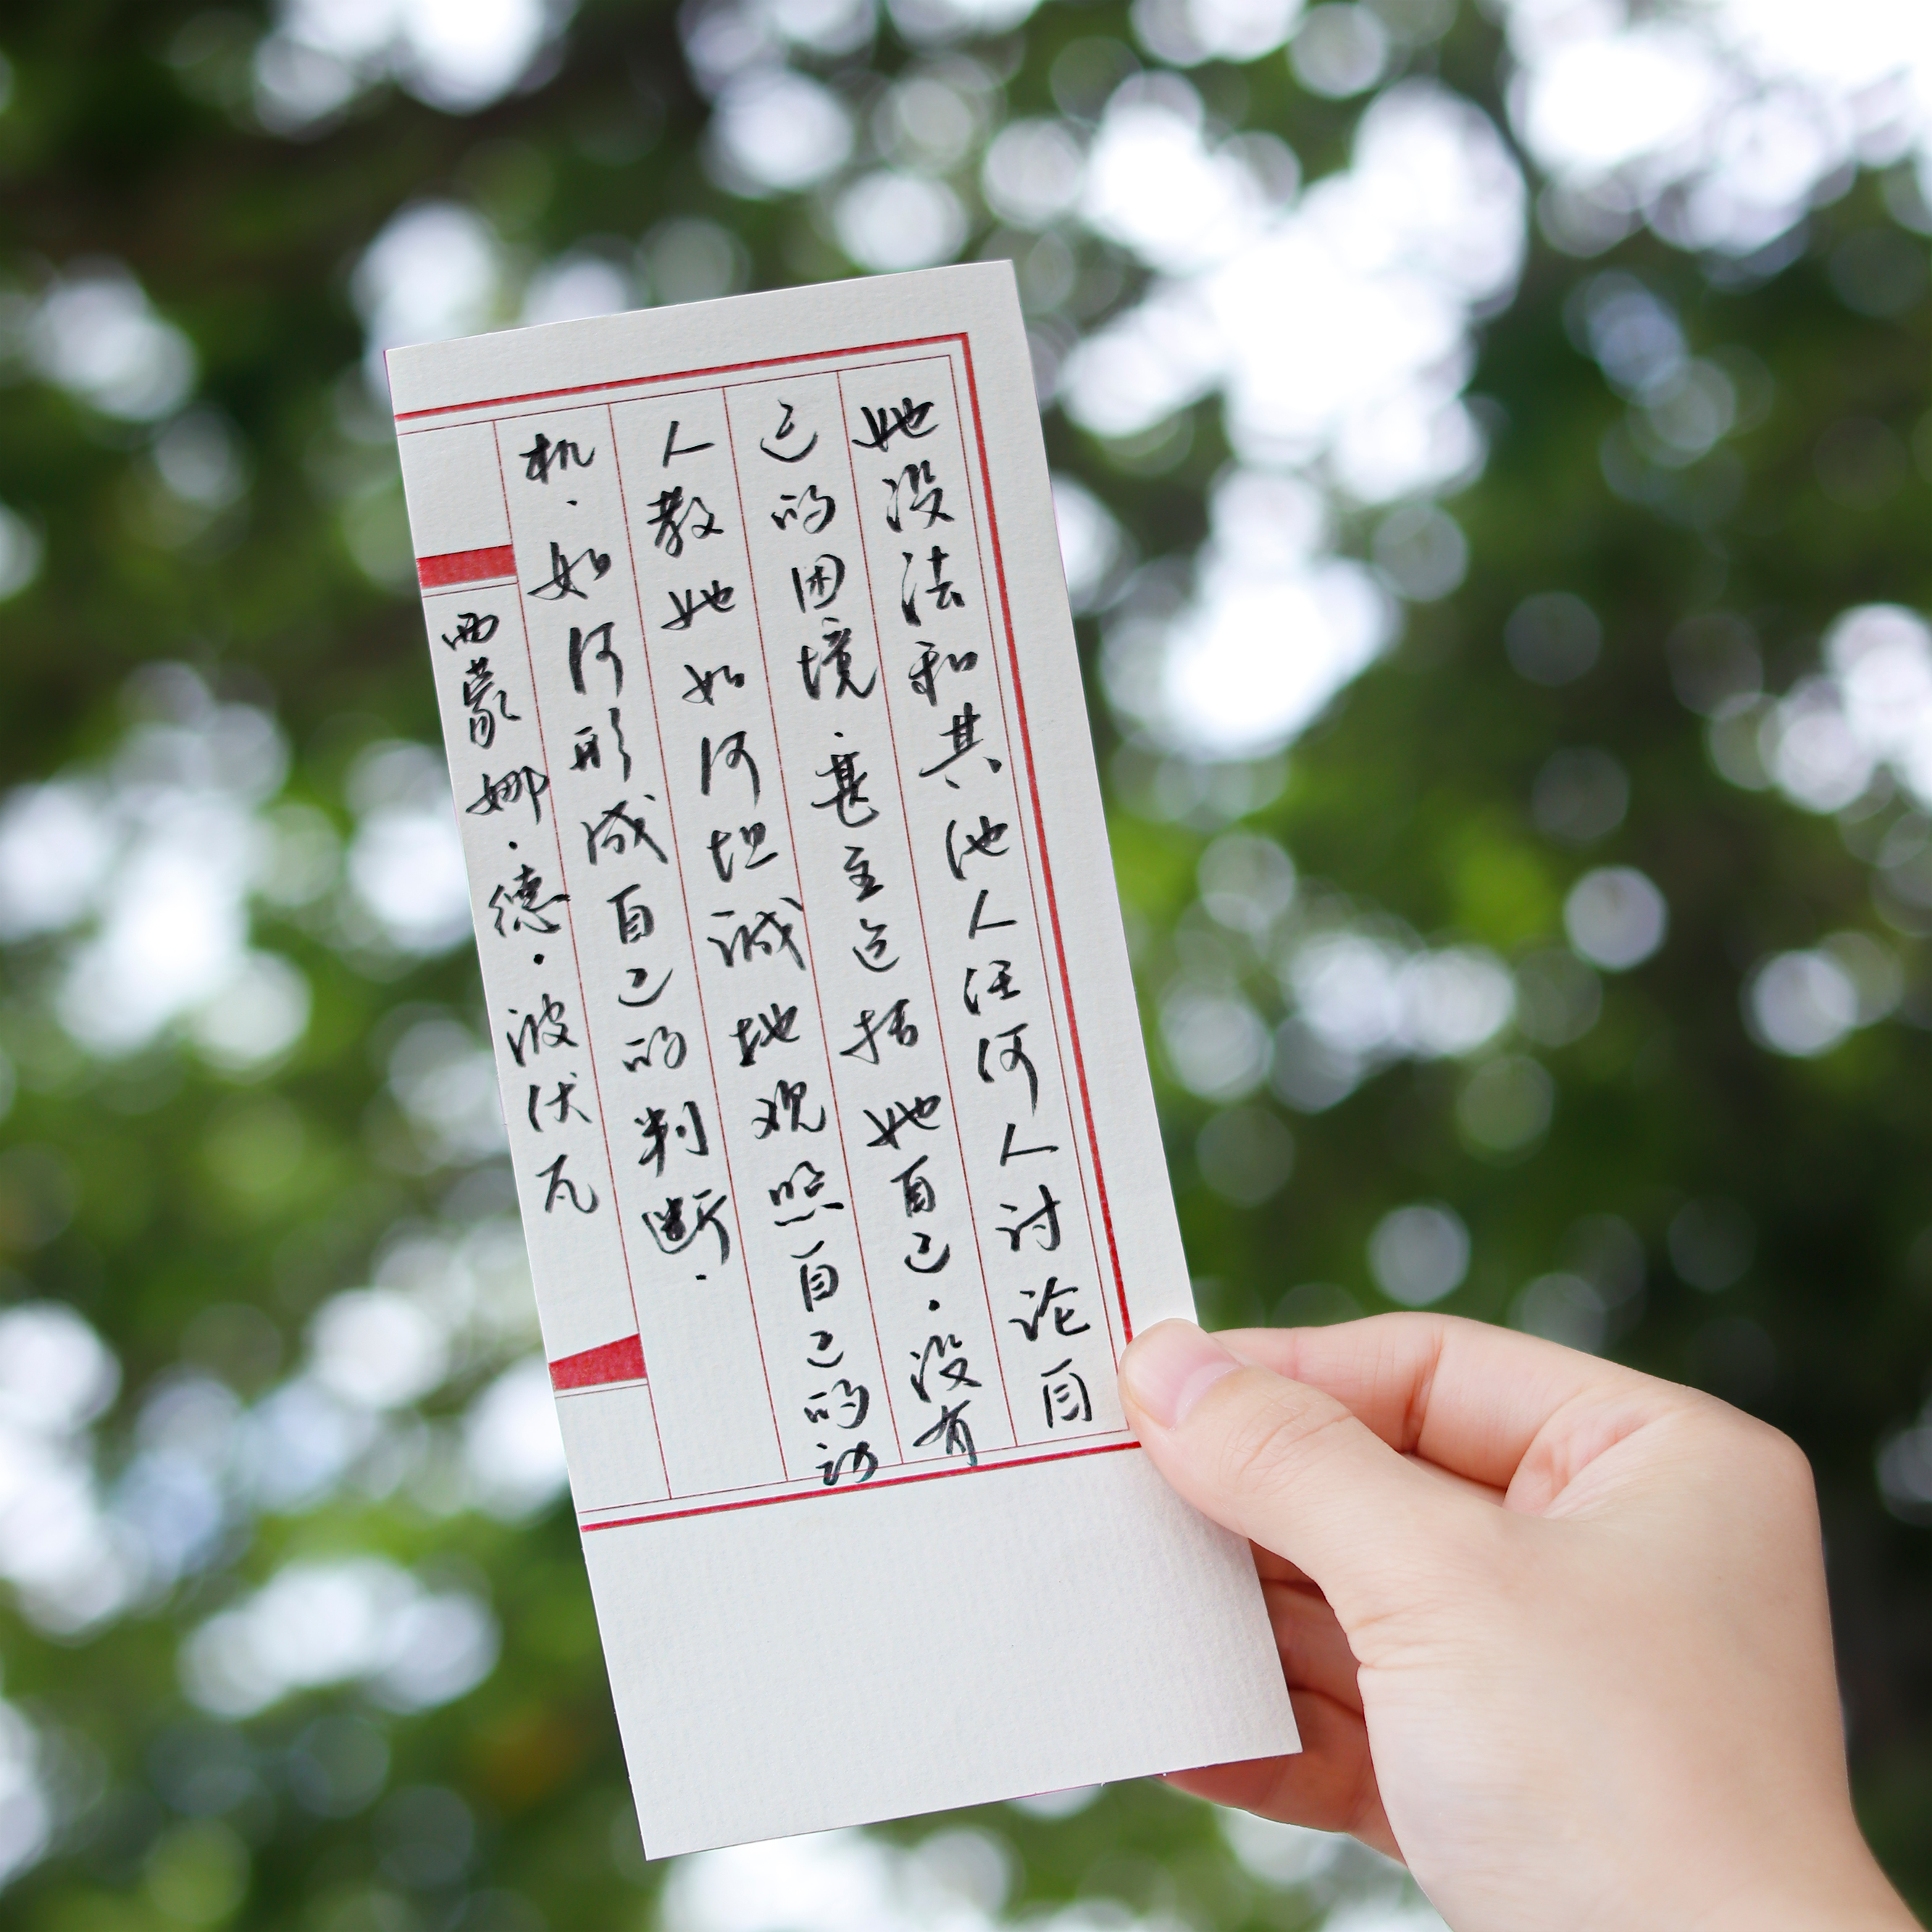 她没法和其他人任何人讨论自
己的困境.甚至包括她自己.没有
人教她如何坦诚地观照自己的动
机.如何形成自己的判断.
西蒙娜·德·波伏瓦